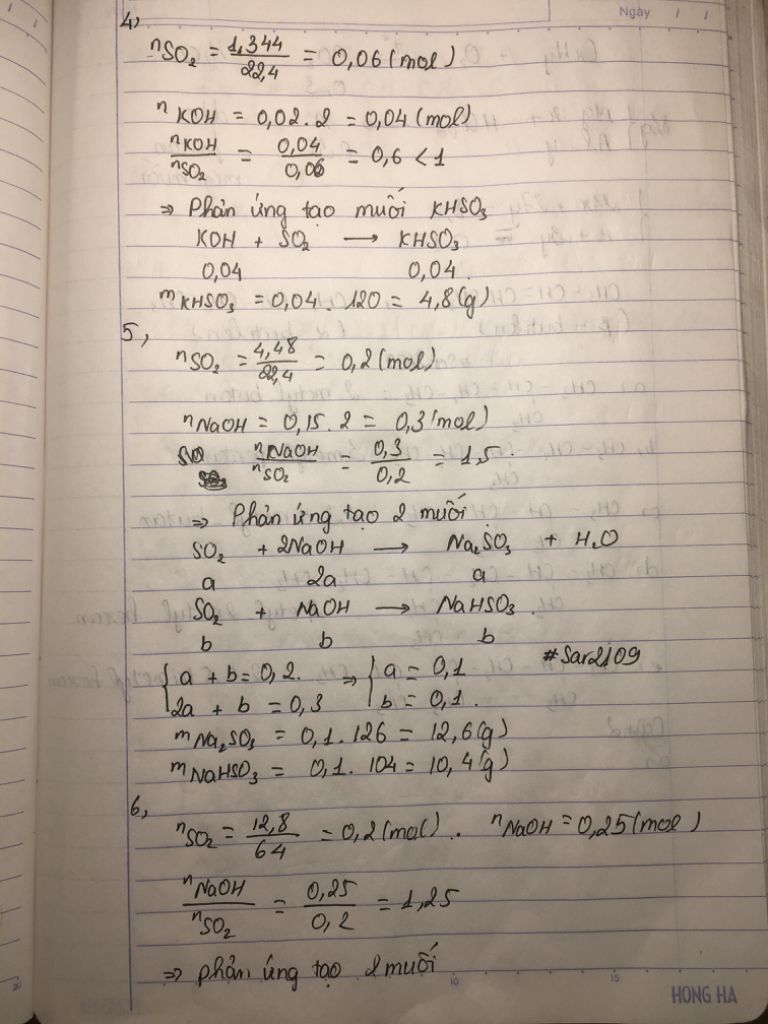 Ngày
4,
nSO₂ = 1,344/22,4 = 0,06 (mol)
nKOH = 0,02 . 2 = 0,04 (mol)
nKOH/nSO₂ = 0,04/0,06 = 0,6 < 1
⇒ Phản ứng tạo muối KHSO₃
KOH + SO₂ ⟶ KHSO₃
0,04 0,04.
mKHSO₃ = 0,04 . 120 = 4,8 (g)
5,
nSO₂ = 4,48/22,4 = 0,2 (mol)
nNaOH = 0,15 . 2 = 0,3 (mol)
nNaOH/nSO₂ = 0,3/0,2 = 1,5.
⇒ Phản ứng tạo 2 muối
SO₂ + 2NaOH ⟶ Na₂SO₃ + H₂O
a 2a a
SO₂ + NaOH ⟶ NaHSO₃.
b b b
{a + b = 0,2. ⇒ {a = 0,1 #Sar2109
{2a + b = 0,3 {b = 0,1.
mNa₂SO₃ = 0,1 . 126 = 12,6 (g)
mNaHSO₃ = 0,1 . 104 = 10,4 (g)
6,
nSO₂ = 12,8/64 = 0,2 (mol). nNaOH = 0,25 (mol)
nNaOH/nSO₂ = 0,25/0,2 = 1,25
⇒ phản ứng tạo 2 muối
10 15
HONG HA